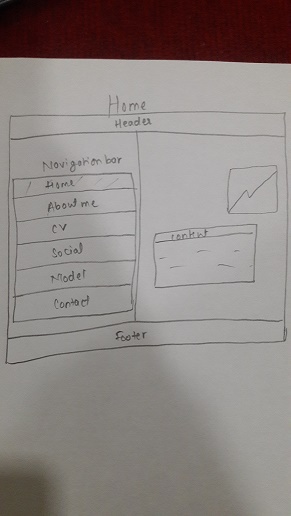 Home
Header
Navigation bar
Home
About me
CV
Social
Model
Contact
content
Footer